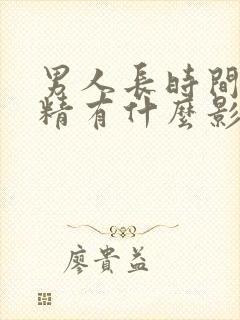 男人長時間
精有什麼影
廖貴益